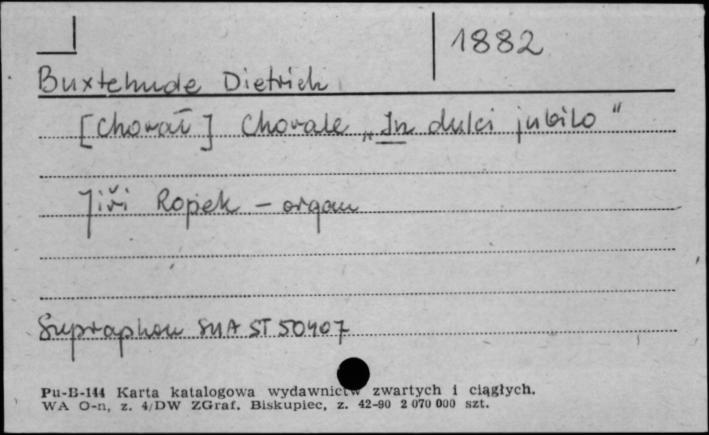 1882
Buxtehude Dietrich
[Chorał] Chorale „In dulci jubilo"
Jiři Ropek - organ
Supraphon SUA ST 50407
Pu-B-144 Karta katalogowa wydawnictw zwartych i ciągłych.
WA O-n, z. 4/DW ZGraf. Biskupiec, z. 42-90 2 070 000 szt.